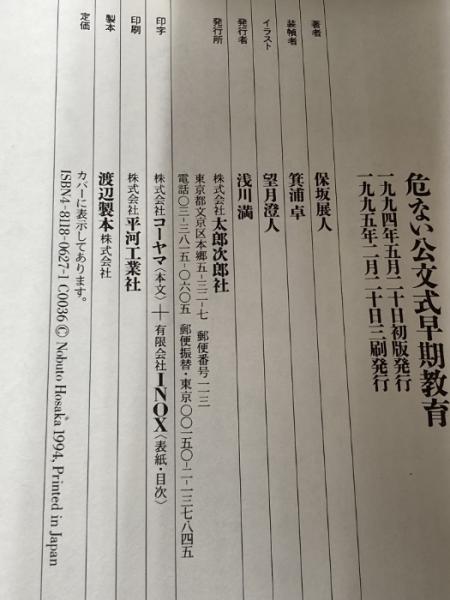 危ない公文式早期教育
一九九四年五月二十日初版発行
一九九五年二月二十日三刷発行
著者 保坂展人
装幀者 箕浦卓
イラスト 望月澄人
発行者 浅川満
発行所 株式会社太郎次郎社
東京都文京区本郷五-三二-七 郵便番号一一三
電話〇三-三八一五-〇六〇五 郵便振替・東京〇〇一五〇-二-一三七八四五
印字 株式会社コーヤマ〈本文〉+有限会社INOX〈表紙・目次〉
印刷 株式会社平河工業社
製本 渡辺製本株式会社
定価 カバーに表示してあります。
ISBN4-8118-0627-1 C0036 © Nobuto Hosaka 1994, Printed in Japan